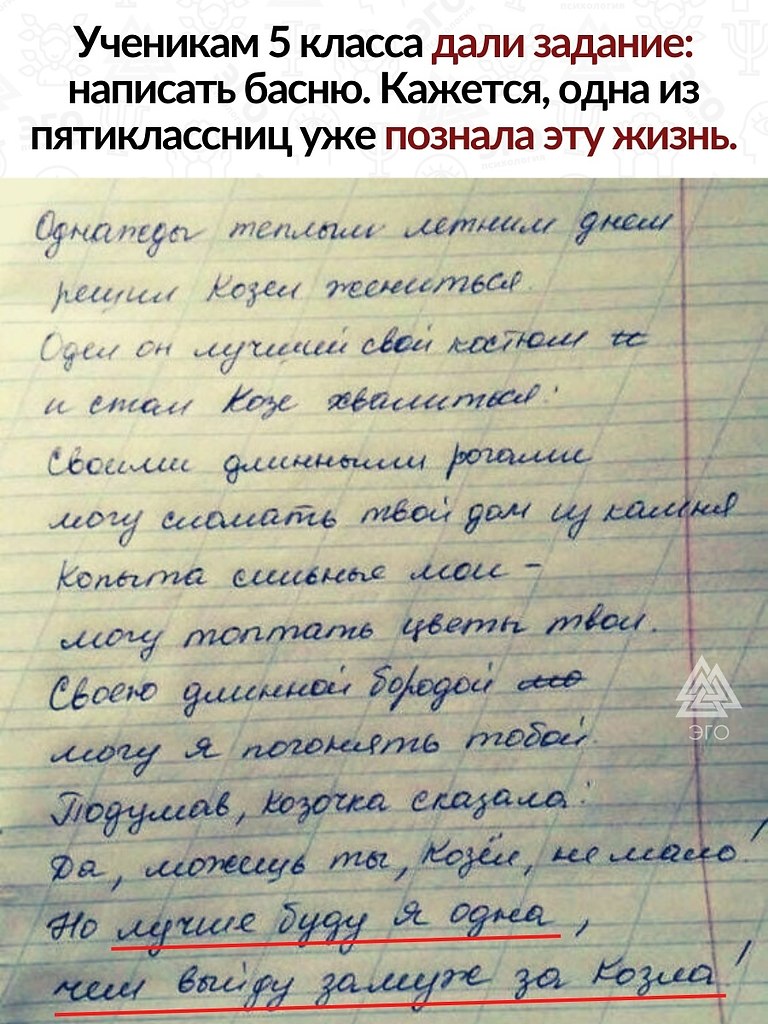 Ученикам 5 класса дали задание:
написать басню. Кажется, одна из
пятиклассниц уже познала эту жизнь.
Однажды теплым летним днем
решил Козел жениться.
Одел он лучший свой костюм и
и стал Козе хвалиться:
Своими длинными рогами
могу сломать твой дом из камня
Копыта сильные мои -
могу топтать цветы твои.
Своею длинной бородой мо
могу я погонять тобой.
Подумав, козочка сказала:
Да, можешь ты, Козёл, не мало!
Но лучше буду я одна,
чем выйду замуж за Козла!
ЭГО